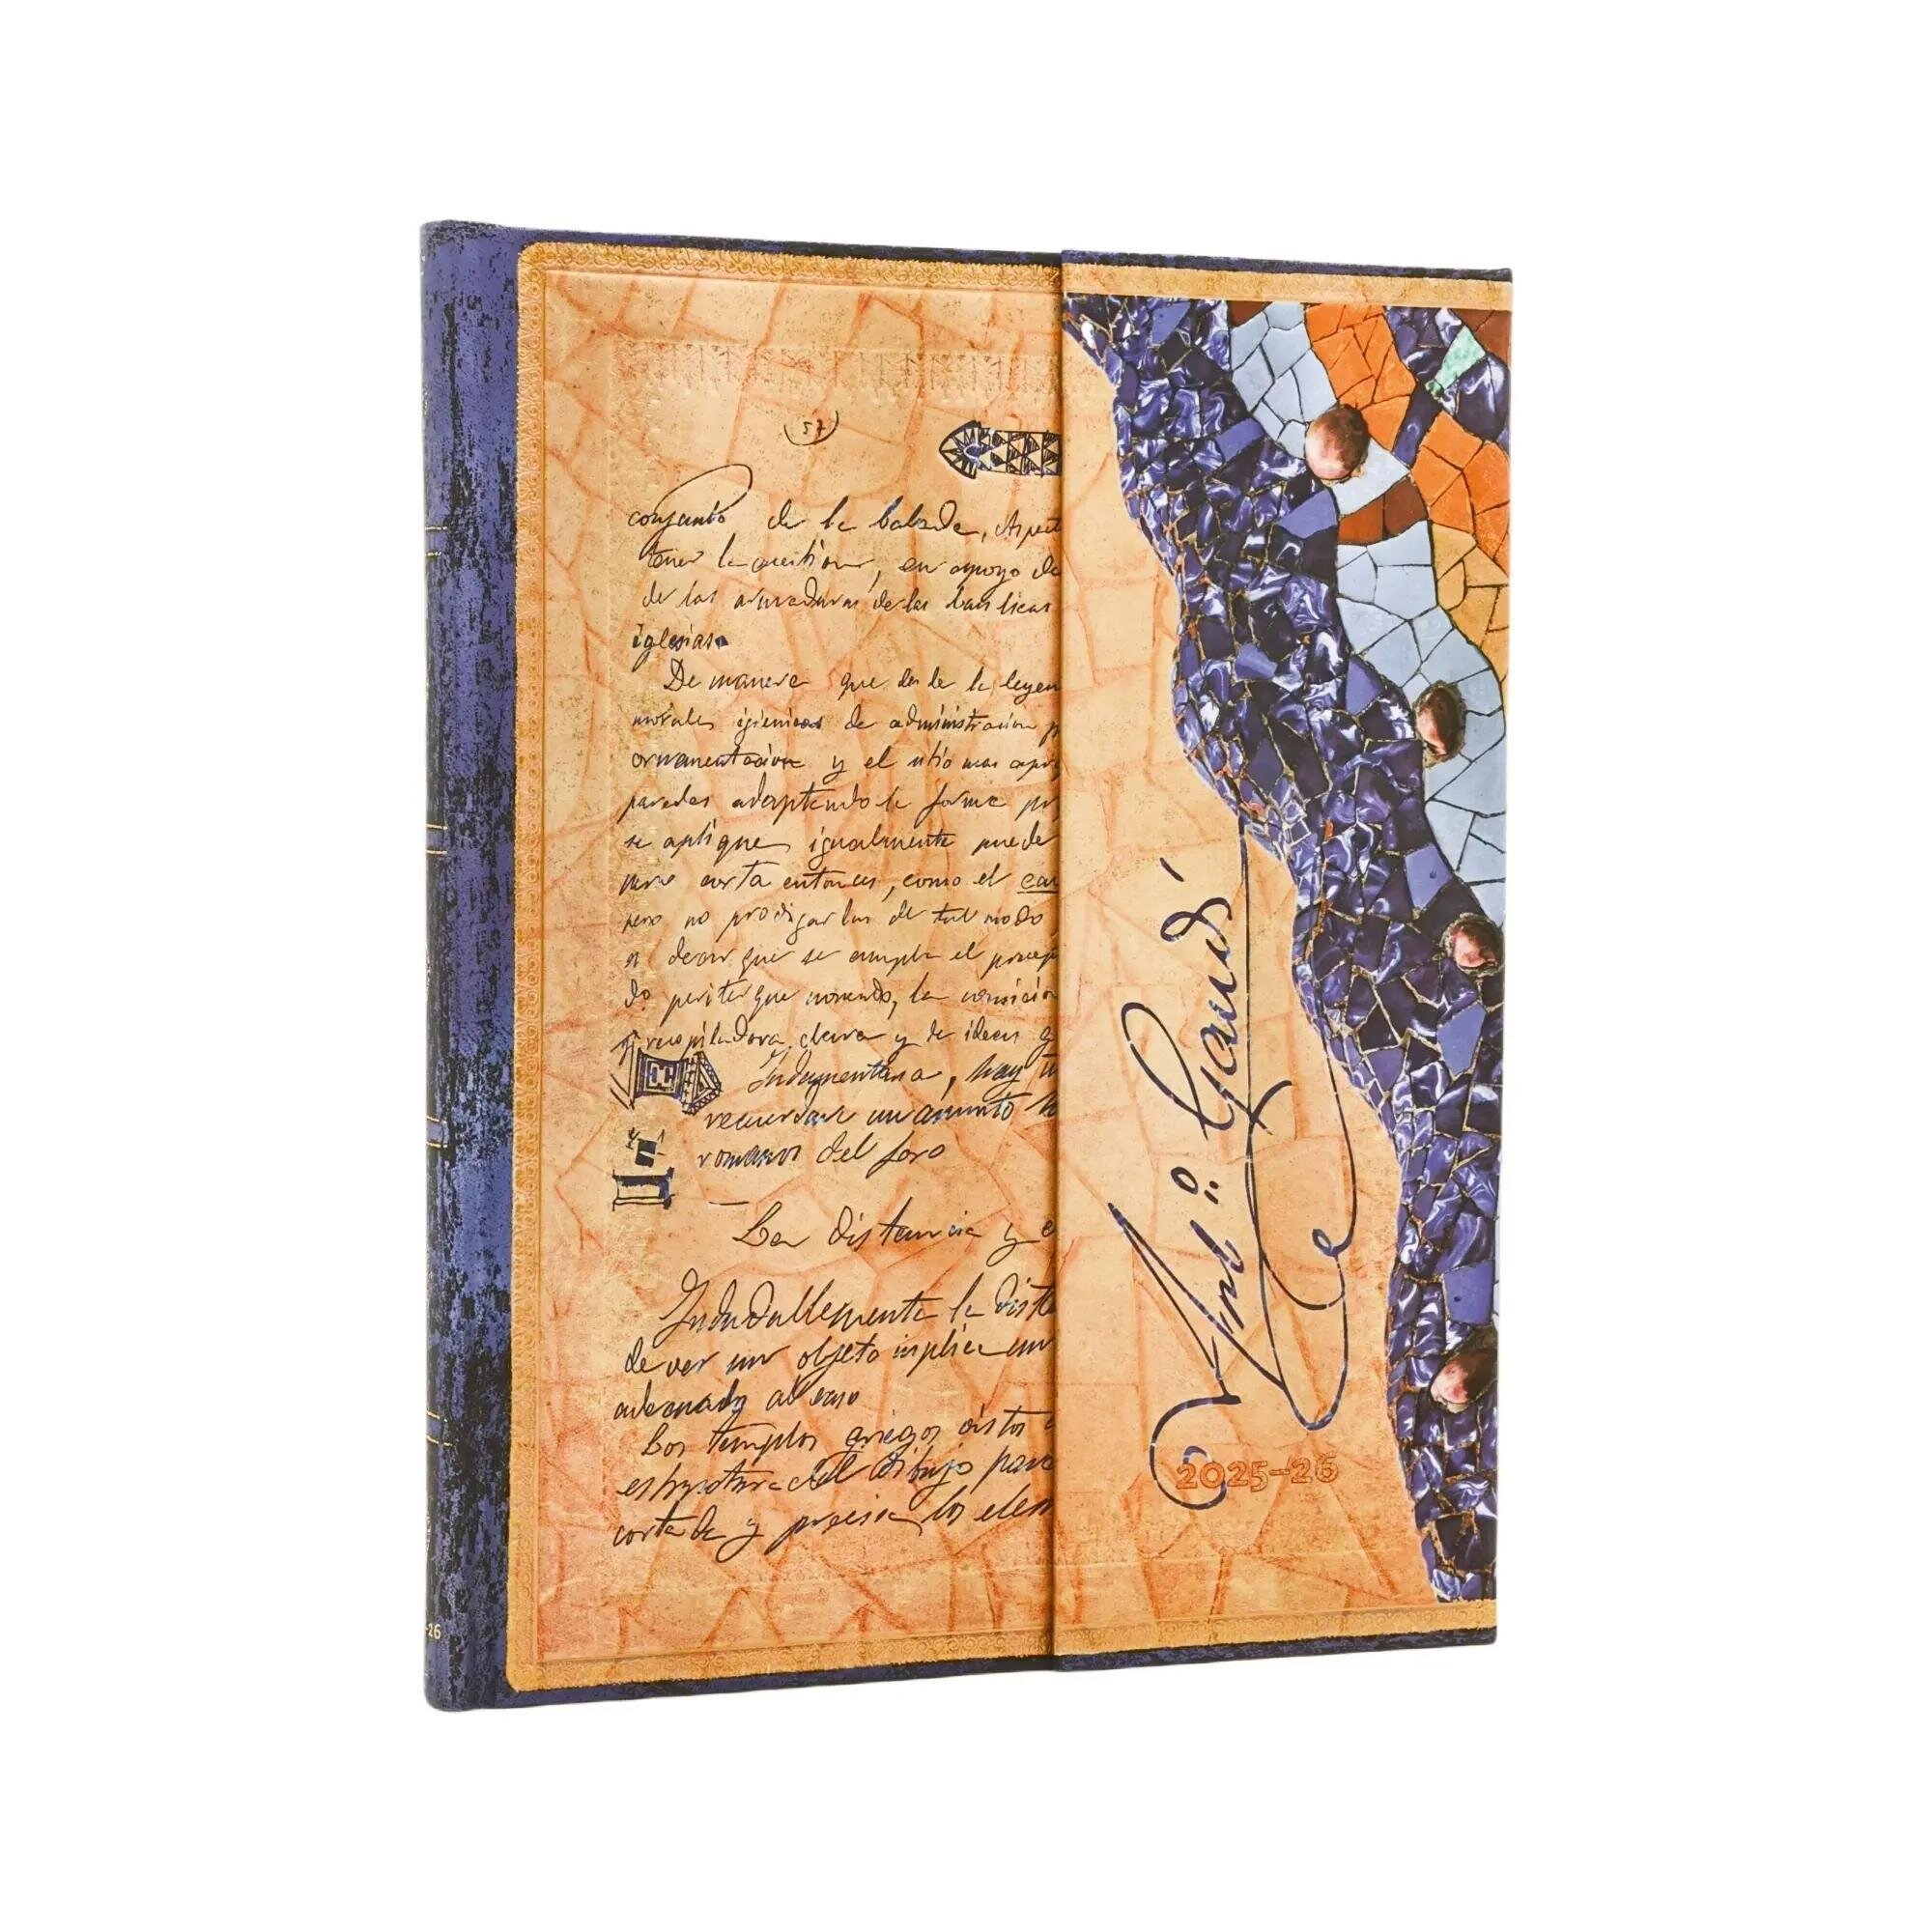 (57)
conjunto de la balada,
tener la cuestion, en apoyo de
de las armaduras de las basilicas
iglesias.
De manera que desde la leyen
morales igienicas de administracion
ornamentacion y el sitio mas
paredes adaptando la forma
se aplique igualmente puede
corta entonces, como el
pero no prodigarlas de tal modo
es decir que se cumpla el
do
recopiladora, clara y de ideas
Indumentaria, hay
recuerdase un asunto
romanos del foro
La distancia y e
Indudablemente la dista
de ver un objeto implica un
adecuada al caso
Los templos griegos vistos
estructura del dibujo para
cortada y precisa los elem
Antº Gaudí
2025-26
-26